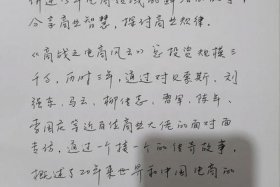 分享商业智慧,探讨商业规律。
《商战之电商风云》总投资规模三
千万,历时3年,通过对贝索斯、刘
强东、马云、柳传志、雷军、陈年、
等近百位商业大佬的面对面
专访,通过一个接一个的传奇故事,
概述了20年来世界和中国电商的